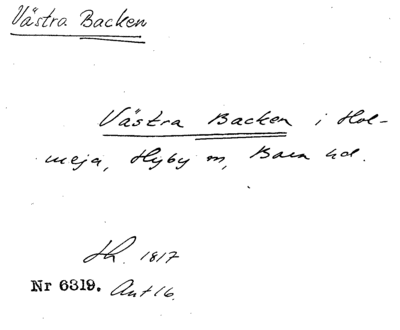 Västra Backen
Västra Backen i Hol-
meja, Hyby sn, Bara hd.
Sk. 1817
Nr 6319. Ant 16.